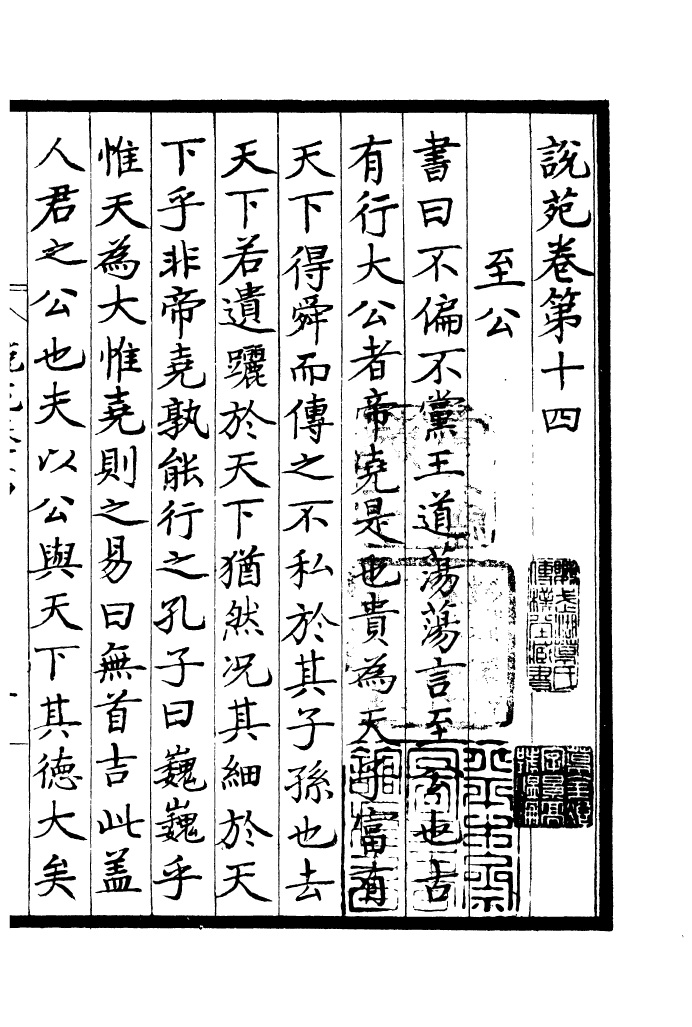 說苑卷第十四
至公
書曰不偏不黨王道蕩蕩言至公也古
有行大公者帝堯是也貴為天子富有
天下得舜而傳之不私於其子孫也去
天下若遺躧於天下猶然况其細於天
下乎非帝堯孰能行之孔子曰巍巍乎
惟天為大惟堯則之易曰無首吉此盖
人君之公也夫以公與天下其德大矣